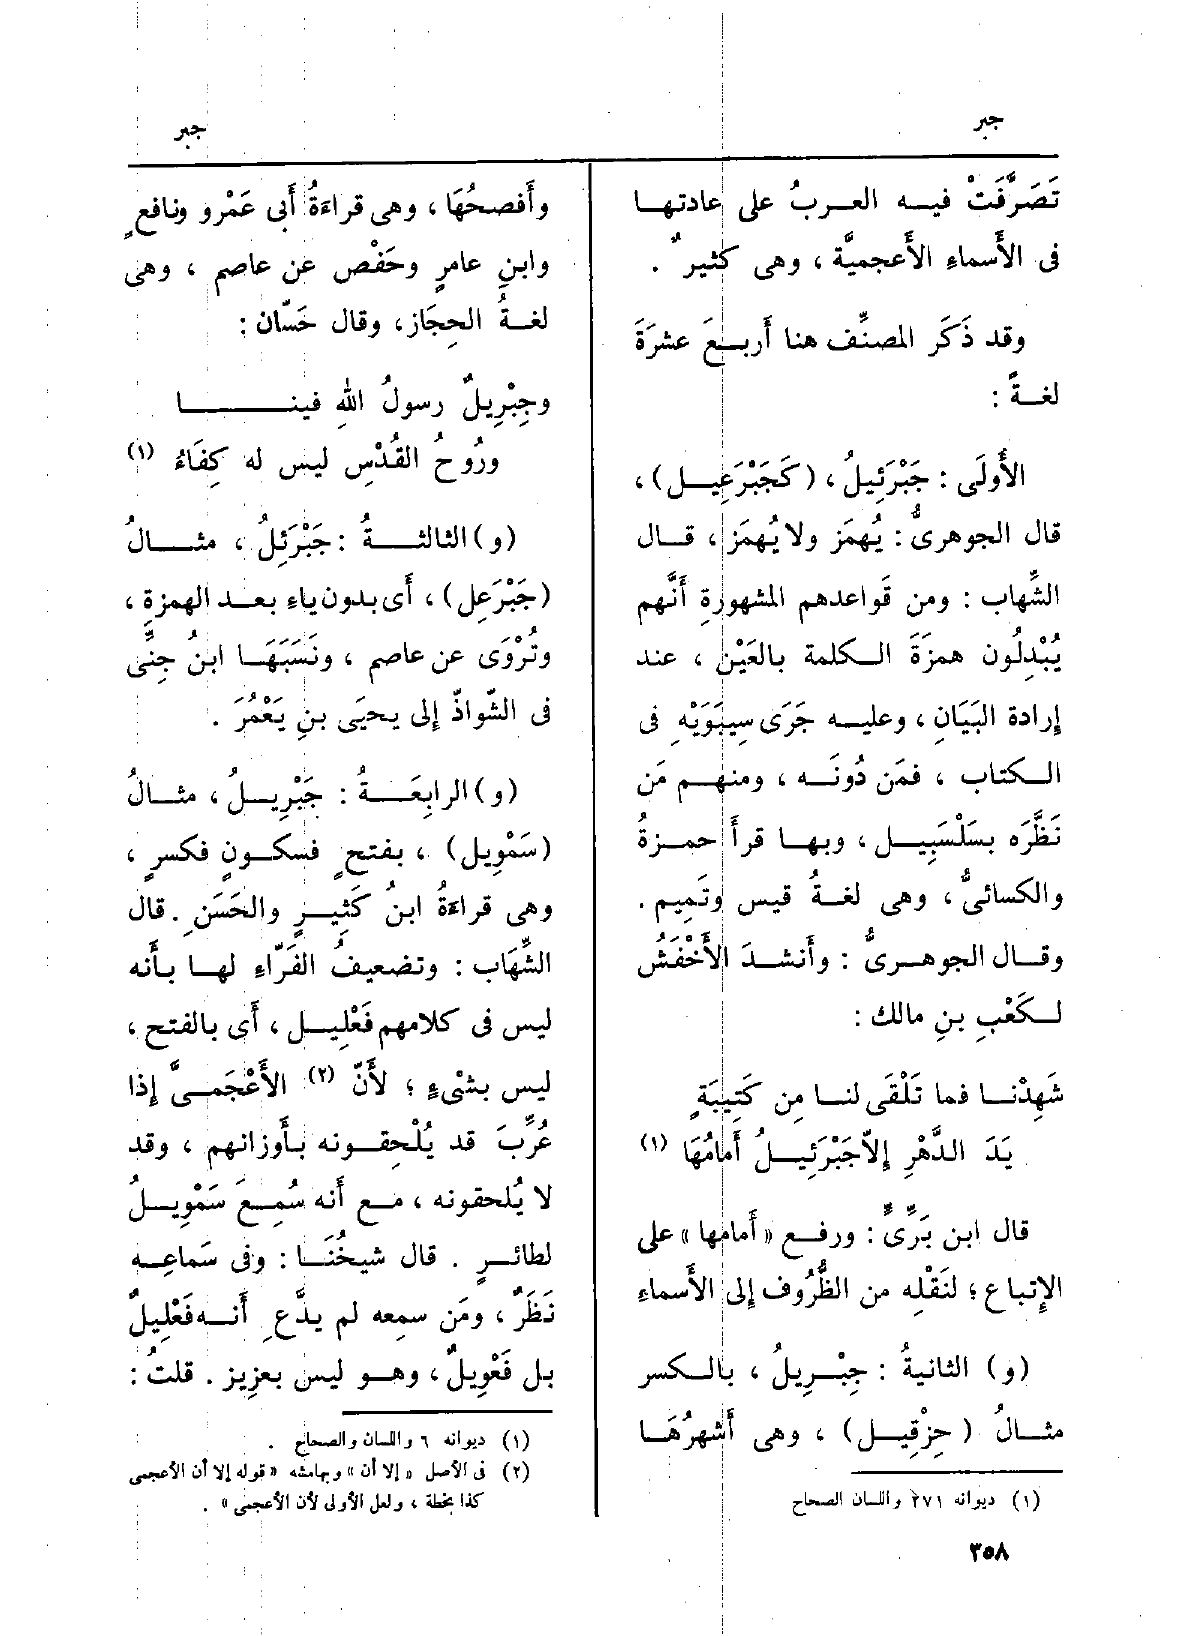 جبر
تَصَرَّفَتْ فيه العربُ على عادتها
فى الأَسماءِ الأَعجميَّة ، وهى كثيرٌ .
وقد ذَكَر المصنِّف هنا أَربعَ عشرَةَ
لغةً :
الأُولَى : جَبْرَئِيلُ ، (كَجَبْرَعِيل) ،
قال الجوهرىُّ : يُهمَز ولا يُهمَز ، قال
الشِّهاب : ومن قواعدهم المشهورةِ أَنَّهم
يُبْدِلُون همزَةَ الكلمة بالعَيْن ، عند
إرادة البَيَانِ ، وعليه جَرَى سِيبَوَيْهِ فى
الكتاب ، فمَن دُونَه ، ومنهم مَن
نَظَّرَه بسَلْسَبِيل ، وبها قرأَ حمزةُ
والكسائىُّ ، وهى لغةُ قيس وتَمِيم .
وقال الجوهرىُّ : وأَنشدَ الأَخْفَشُ
لكَعْبِ بنِ مالك :
شَهِدْنا فما تَلْقَى لنا مِن كَتِيبَةٍ
يَدَ الدَّهْرِ إلاّ جَبْرَئِيلُ أَمامُهَا (١)
قال ابن بَرِّىٌّ : ورفع « أَمامها » على
الإتباع ؛ لنَقْلِه من الظُّرُوف إلى الأَسماء
(و) الثانيةُ : جِبْرِيلُ ، بالكسر
مثالُ (حِزْقِيل) ، وهى أَشهرُهَا
(١) ديوانه ٢٧١ واللسان الصحاح
٣٥٨
جبر
وأَفصحُهَا ، وهى قراءَةُ أَبى عَمْرو ونافعٍ
وابنِ عامرٍ وحَفْص عن عاصم ، وهى
لغةُ الحِجَاز ، وقال حَسّان :
وجِبْرِيلٌ رسولُ اللهِ فينا
ورُوحُ القُدْسِ ليس له كِفَاءُ (١)
(و) الثالثةُ : جَبْرَئِلُ ، مثالُ
(جَبْرَعِل) ، أَى بدون ياءٍ بعد الهمزةِ ،
وتُرْوَى عن عاصم ، ونَسَبَهَا ابنُ جِنِّى
فى الشّواذّ إلى يحيَى بنِ يَعْمُرَ .
(و) الرابعَةُ : جَبْرِيلُ ، مثالُ
(سَمْوِيل) ، بفتحٍ فسكونٍ فكسرٍ ،
وهى قراءَةُ ابنُ كَثِيرٍ والحَسَنِ . قال
الشِّهَاب : وتضعيفُ الفَرّاءِ لها بأَنه
ليس فى كلامهم فَعْلِيل ، أَى بالفتح ،
ليس بشىْءٍ ؛ لأَنّ (٢) الأَعْجَمىَّ إذا
عُرِّبَ قد يُلْحِقونه بأَوزانهم ، وقد
لا يُلحقونه ، مع أَنه سُمِعَ سَمْوِيلُ
لطائرٍ . قال شيخُنَا : وفى سَماعِه
نَظَرٌ ، ومَن سمعه لم يدَّعِ أَنه فَعْلِيلٌ
بل فَعْوِيلٌ ، وهو ليس بعزيز . قلتُ :
(١) ديوانه ٦ واللسان والصحاح .
(٢) فى الأصل « إلا أن » وبهامشه « قوله إلا أن الأعجمى
كذا بخطة ، ولعل الأولى لأن الأعجمى » .